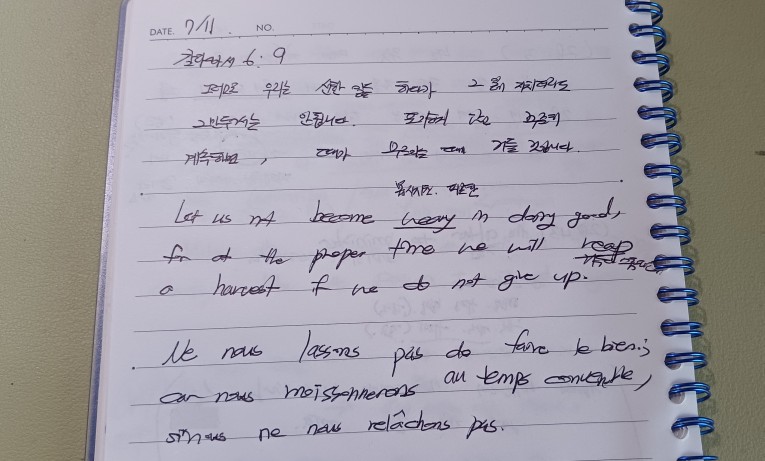 DATE. 7/11. NO.
갈라디아서 6:9
그러므로 우리는 선한 일을 하다가 그 일에 지치더라도
그만두어서는 안됩니다. 포기하지 않고
계속하면, 때가 이르는 때에 거둘 것입니다.
몹시지친. 피곤한
Let us not become weary in doing good,
for at the proper time we will reap
a harvest if we do not give up.
Ne nous lassons pas de faire le bien;
car nous moissonnerons au temps convenable,
si nous ne nous relâchons pas.